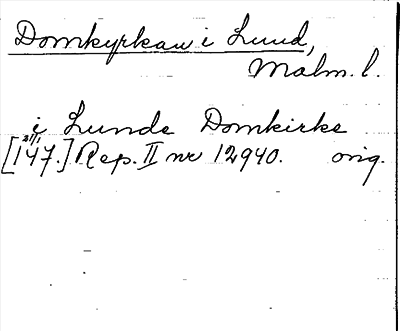 Domkyrkan i Lund,
Malm. l.
i Lunde Domkirke
[147.] Rep. II nr 12940. orig.